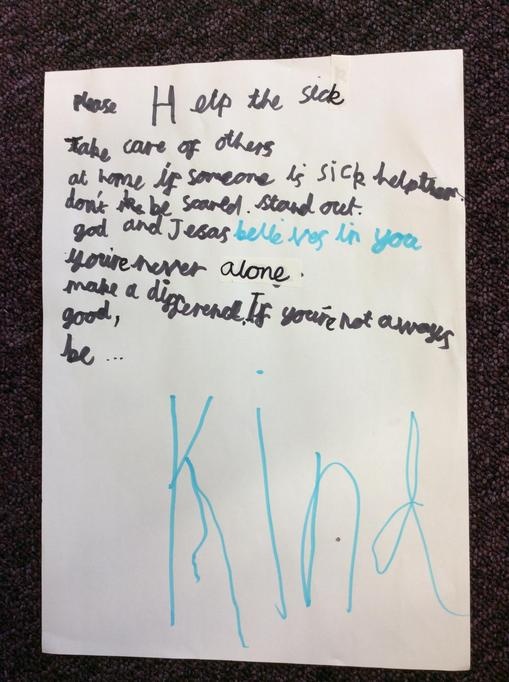 please Help the sick
Take care of others
at home if someone is sick help them.
don't be scared. stand out.
god and Jesas believes in you
you're never alone.
make a difference. If you're not aways
good,
be ...
Kind